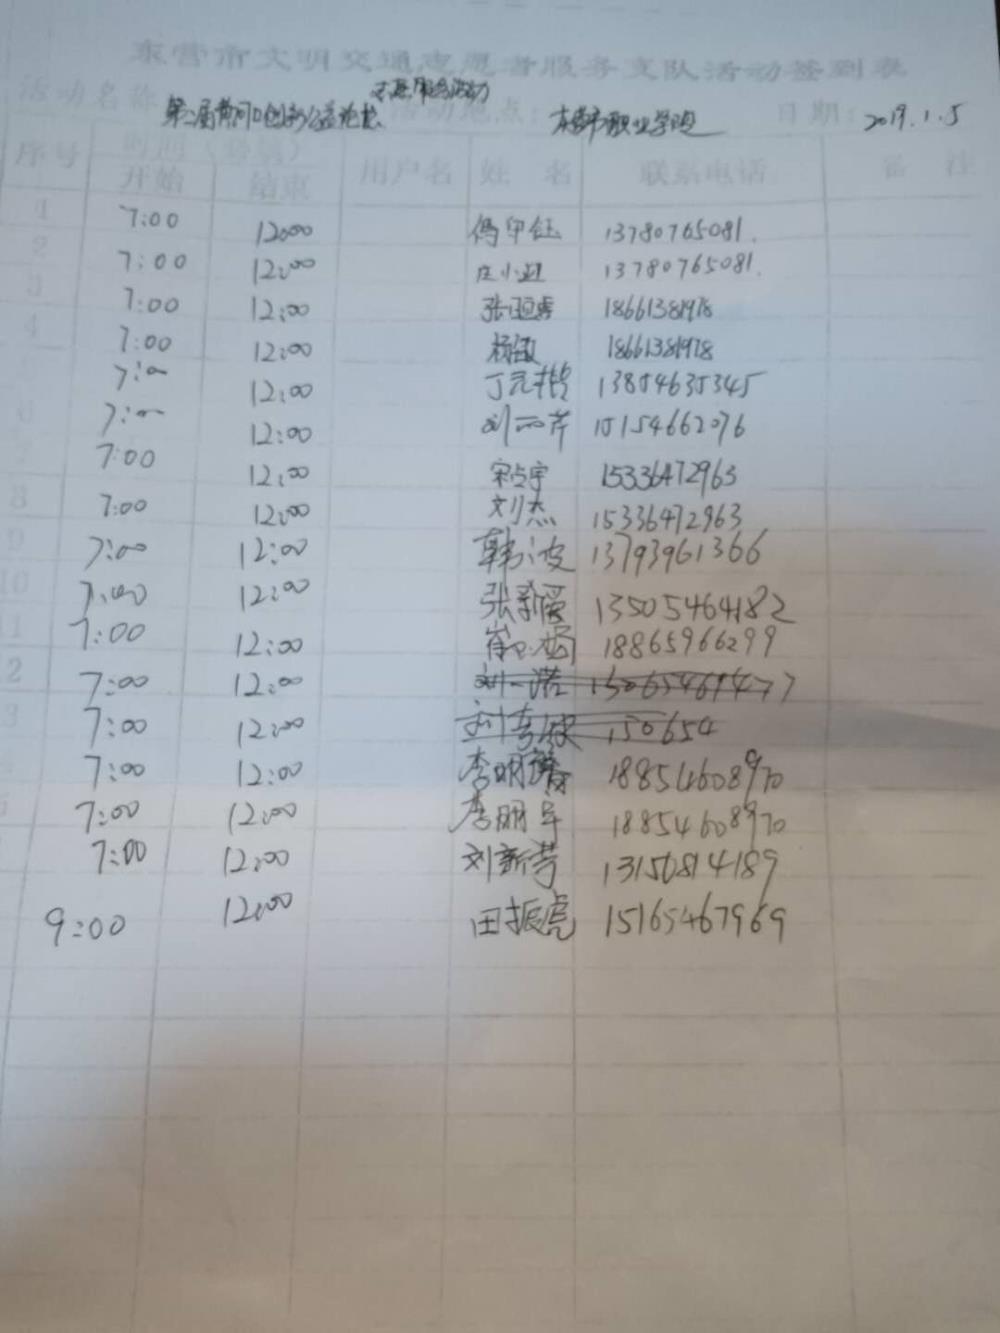 东营市文明交通志愿者服务支队活动签到表
志愿服务活动
活动名称 第二届黄河口创新公益论坛 活动地点: 东营市职业学院 日期: 2019.1.5
序号 时间(必填) 用户名 姓 名 联系电话 备 注
开始 结束
1 7:00 12:00 冯中钰 13780765081.
2 7:00 12:00 庄小亚 13780765081.
3 7:00 12:00 张恒睿 18661381978
4 7:00 12:00 杨敏 18661381978
7:00 12:00 丁元哲 13854635345
6 7:00 12:00 刘丽芹 15154662076
7:00 12:00 宋占宇 15336472963
8 7:00 12:00 刘杰 15336472963
9 7:00 12:00 韩波 13793961366
10 7:00 12:00 张新爱 13505464182
11 7:00 12:00 18865966299
12 7:00 12:00 刘一诺
13 7:00 12:00 150654
7:00 12:00 李明 18854608970
7:00 12:00 李朋军 18854608970
7:00 12:00 刘新芳 13150814189
9:00 12:00 田振虎 15165467969